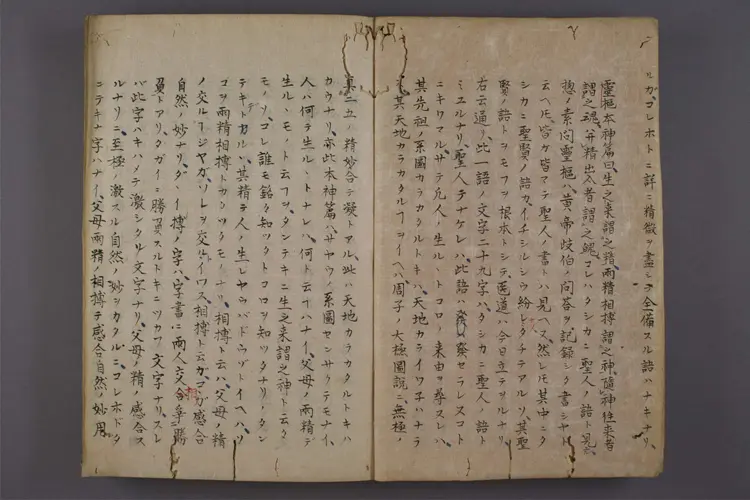 ルガコレホトニ詳ニ精微ヲ盡シヲ全備スル語ハナキナリ、
靈樞本神篇曰、生之来謂之精、兩精相搏謂之神、隨神往来者
謂之魂、並精出入者謂之魄、コレハタシカニ聖人ノ語ト見ユ、
惣ノ素問靈樞ハ、黄帝岐伯ノ問答ヲ記録シタ書シヤト
云ヘ𪜈、皆カ皆マテ聖人ノ書トハ見ヘヌ、然レ𪜈其中ニタ
シカニ聖賢ノ語カ、イチシルシウ紛レタチテアルソ、其聖
賢ノ語トヲモフヲ根本トシテ、医道ハ今日マテヲルナリ、
右云通リ、此一語ノ文字二十九字ハ、タシカニ聖人ノ語ト
ミユルナリ、聖人テナケレハ、此語ハ發セラレヌコト
ニキワマルサテ凡人ノ生ルヽトコロノ来由ヲ尋スレハ、
其先祖ノ系圖カラカタルトキハ、天地カライワ子ハナラ
ヌ、其天地カラカタルヿヲイヘハ、周子ノ大極圖説ニ無極ノ
真二五ノ精妙合テ凝トアル、此ハ天地カラカタルトキハ
カウナリ、亦此本神篇ハ、サヤウノ系圖センサクテモナイ、
人ハ何テ生ルヽトナレハ、何ト云ヿハナイ、父母ノ兩精テ
生ルヽモノト云フヲ、タンテキニ生之来謂之神ト云タ
モノソ、コレ誰モ銘々知ツタトコロヲ知ツタナリノタン
テキトカルヽ、其精テ人ノ生レヤウハドウゾトイヘハ、ソ
コヲ兩精相搏トカツタモノナリ、相搏ト云ハ、父母ノ精
ノ交ルヿジヤガ、ソレヲ交ルトイワス相搏ト云カ、コヽガ感合
自然ノ妙ナリ、ダヽイ搏ノ字ハ、字書ニ兩人交合争勝
負トアリ、タガイニ勝負スルトキニツカフ文字ナリ、スレ
バ此字ハキハメテ激シタル文字ナリ、父母ノ精ノ感合ス
ルナリニ至極ノ激スル自然ノ妙ヲカタルニ、コレホドタ
ニテキナ字ハナイ、父母兩精ノ相搏テ感合自然ノ妙用